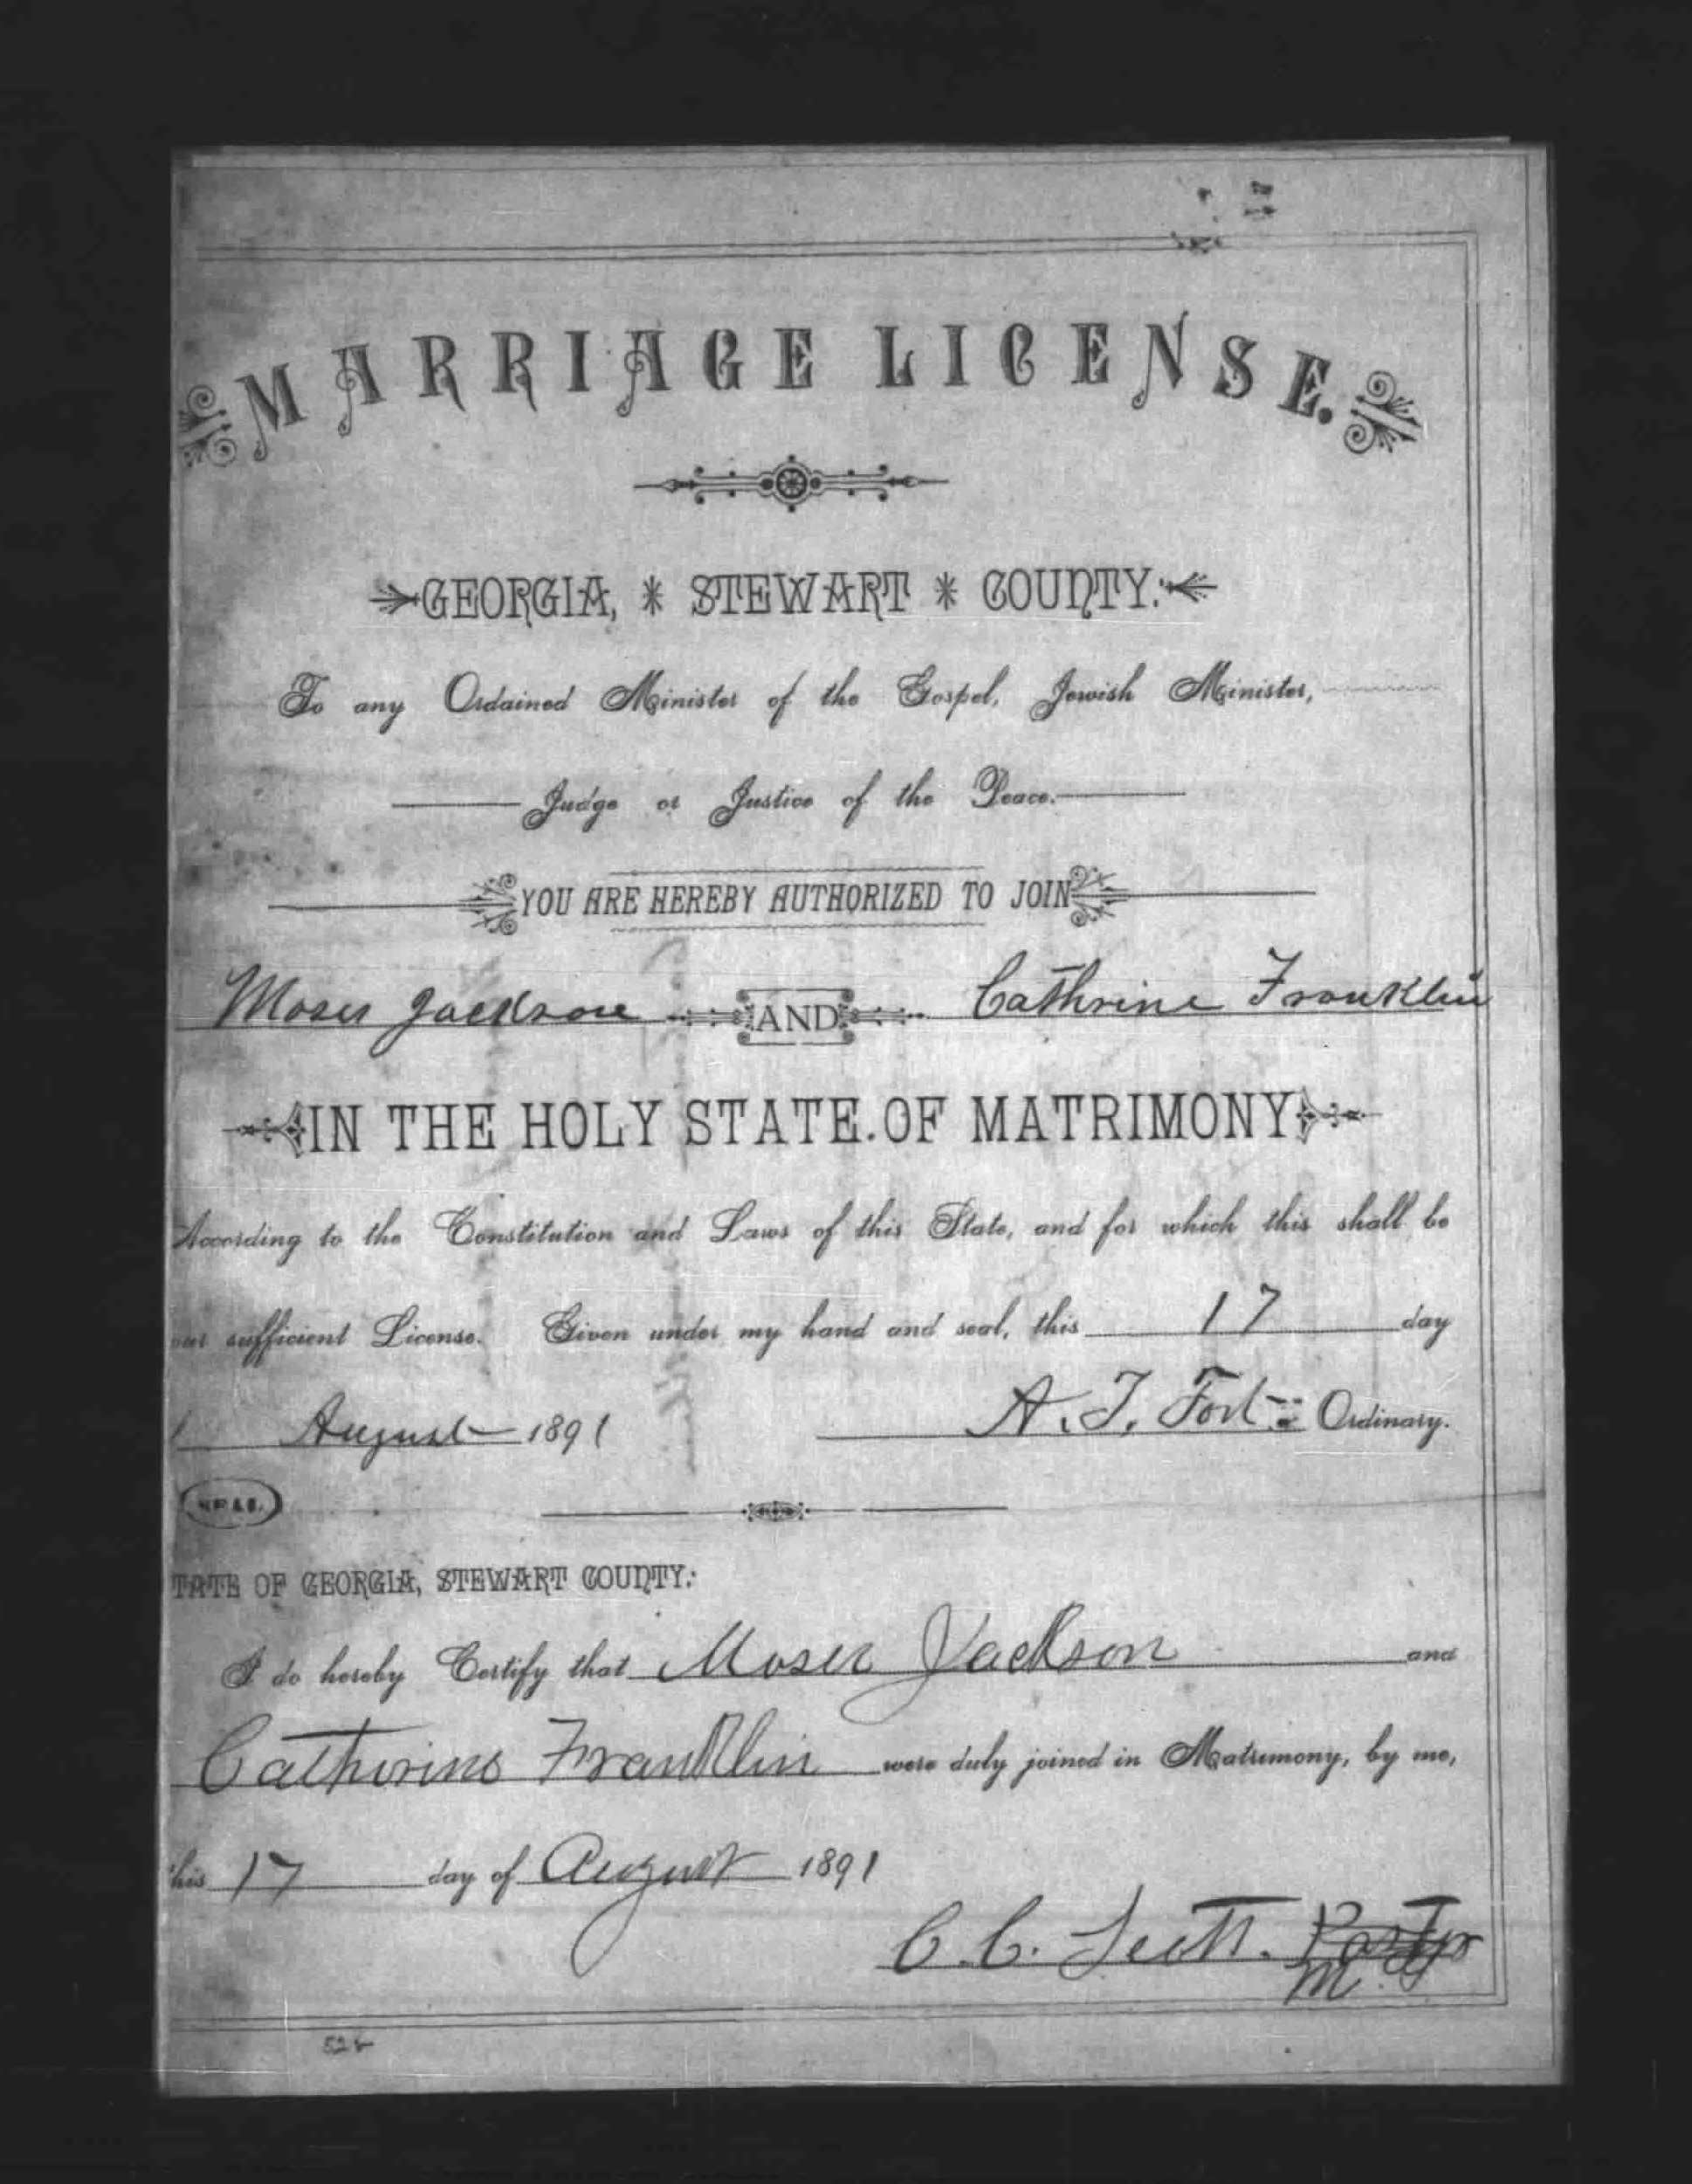 MARRIAGE LICENSE.
GEORGIA, * STEWART * COUNTY:
To any Ordained Minister of the Gospel, Jewish Minister,
Judge or Justice of the Peace.
YOU ARE HEREBY AUTHORIZED TO JOIN
Moses Jackson AND Cathrine Franklin
IN THE HOLY STATE OF MATRIMONY
According to the Constitution and Laws of this State, and for which this shall be
sufficient License. Given under my hand and seal, this 17 day
August 1891 A. T. Fort Ordinary.
SEAL
TATE OF GEORGIA, STEWART COUNTY:
I do hereby Certify that Moses Jackson and
Catherine Franklin were duly joined in Matrimony, by me,
his 17 day of August 1891
C. C. Scott. Pastor
M. G